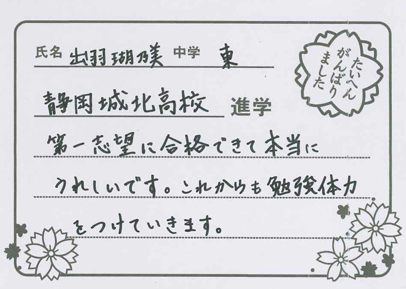 氏名 出羽瑚乃美 中学 東
たいへん
がんばり
ました
静岡城北高校 進学
第一志望に合格できて本当に
うれしいです。これからも勉強体力
をつけていきます。